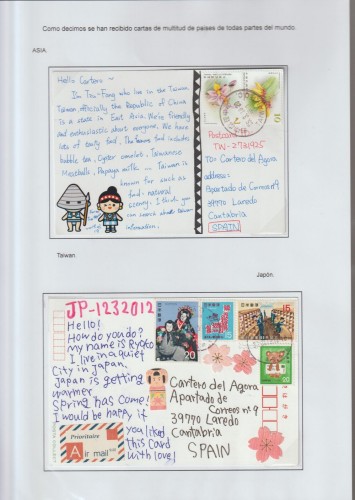 Como decimos se han recibido cartas de multitud de paises de todas partes del mundo.
ASIA.
Hello Cartero~
I'm Tzu-Fang who live in the Taiwan
Taiwan officially the Republic of China
is a state in East Asia. We're friendly
and enthusiastic about everyone, We have
lots of tasty food. The Taiwan food includes
bubble tea, Oyster omelet, Taiwanese
Meatballs, Papaya milk... Taiwan is
known for such as
food, natural
scenery. I think you
can search about Taiwan
information.
10
Postcard
TW-2731925
TO: Cartero del Agora
address:
Apartado de Correos nº9
39770 Laredo
Cantabria
SPAIN
Taiwan.
Japón.
JP-1232012
Hello!
How do you do?
my name is Ryoko
I live in a quiet
City in japan.
Japan is getting
warmer
Spring has come!
I would be happy if
you liked
this Card
with love!
Prioritaire
Air mail
日本郵便
20
日本郵便
日本郵便
15
20
Cartero del Agora
Apartado de
Correos nº 9
39770 Laredo
Cantabria
SPAIN